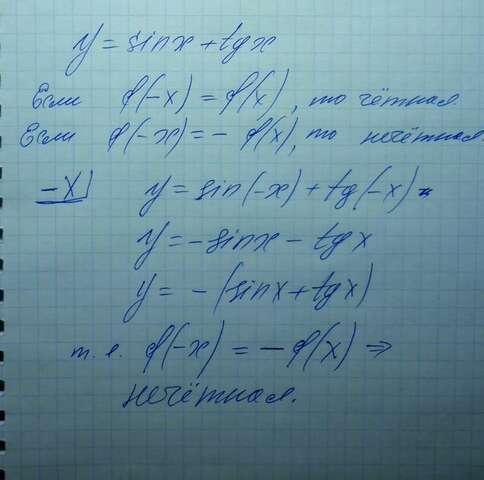 y = sinx + tgx
Если f(-x) = f(x), то чётная.
Если f(-x) = - f(x), то нечётная.
-x y = sin(-x) + tg(-x) =
y = -sinx - tgx
y = - (sinx + tgx)
т. е. f(-x) = - f(x) ⇒
нечётная.